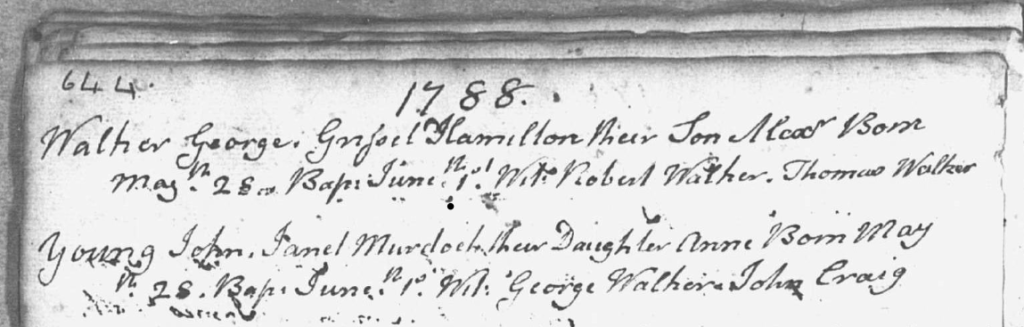 644.
1788.
Walker George. Grissel Hamilton their Son Alexr Born
May. th 28. Bap: June. th 1st. Wits Robert Walker. Thomas Walker
Young John. Janet Murdoch their Daughter Anne Born May
th 28. Bap: June. th 1st. Wit: George Walker. John Craig